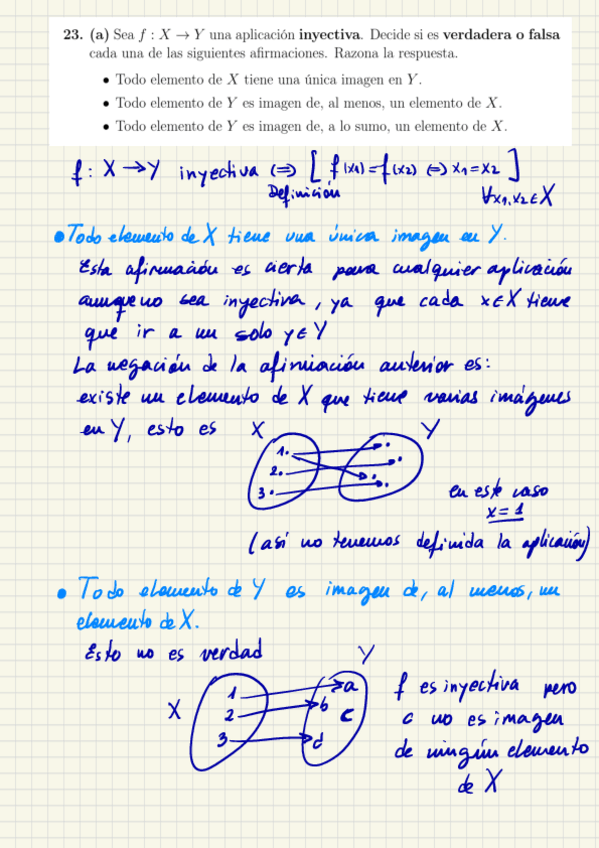 23. (a) Sea f : X → Y una aplicación inyectiva. Decide si es verdadera o falsa
cada una de las siguientes afirmaciones. Razona la respuesta.
• Todo elemento de X tiene una única imagen en Y.
• Todo elemento de Y es imagen de, al menos, un elemento de X.
• Todo elemento de Y es imagen de, a lo sumo, un elemento de X.
f : X → Y inyectiva ⇔ [ f(x1) = f(x2) ⇔ x1 = x2 ]
Definición
∀x1, x2 ∈ X
• Todo elemento de X tiene una única imagen en Y.
Esta afirmación es cierta para cualquier aplicación
aunque no sea inyectiva, ya que cada x ∈ X tiene
que ir a un solo y ∈ Y
La negación de la afirmación anterior es:
existe un elemento de X que tiene varias imágenes
en Y, esto es
X Y
1.
2.
3.
en este caso
x = 1
(así no tenemos definida la aplicación)
• Todo elemento de Y es imagen de, al menos, un
elemento de X.
Esto no es verdad
X Y
1 a
2 b
c
3 d
f es inyectiva pero
c no es imagen
de ningún elemento
de X